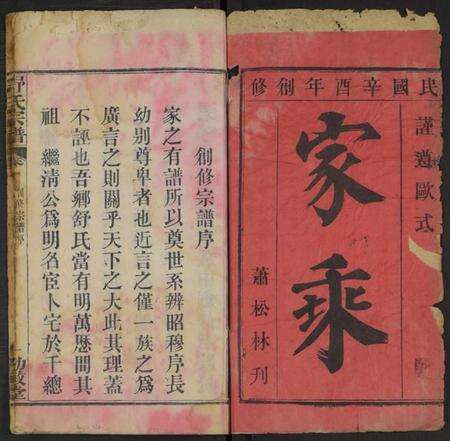 民國辛酉年創修
謹遵歐式
家乘
蕭松林刊
創修宗譜序
家之有譜所以奠世系辨昭穆序長
幼别尊卑者也近言之僅一族之爲
廣言之則關乎天下之大此其理蓋
不誣也吾鄉舒氏當有明萬歷間其
祖 繼清公爲明名宦卜宅於千總
舒氏宗譜
創修宗譜序